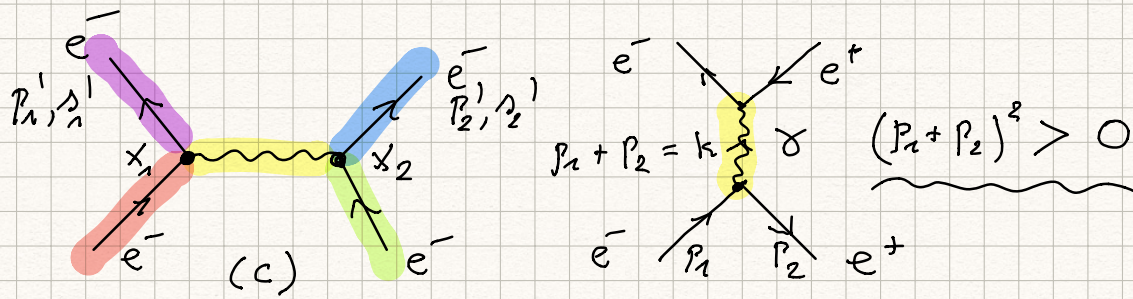 e⁻
p₁', s₁'
x₁
e⁻
(c)
e⁻
p₂', s₂'
x₂
e⁻
e⁻
e⁺
p₁ + p₂ = k
γ
e⁻
p₁
p₂
e⁺
(p₁ + p₂)² > 0